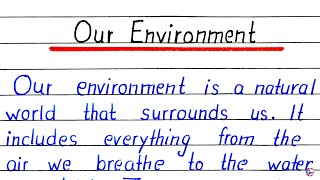 Our Environment
Our environment is a natural
world that surrounds us. It
includes everything from the
air we breathe to the water